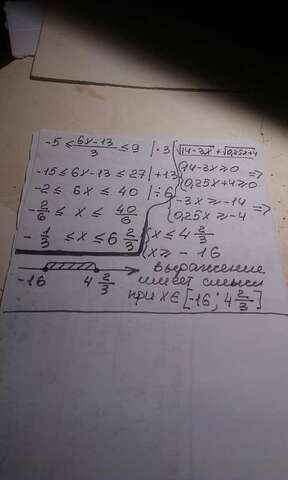 -5 ≤ (6x-13)/3 ≤ 9 | ·3
-15 ≤ 6x-13 ≤ 27 | +13
-2 ≤ 6x ≤ 40 | ÷6
-2/6 ≤ x ≤ 40/6
-1/3 ≤ x ≤ 6 2/3
√14-3x + √0,25x+4
{14-3x ≥ 0
0,25x+4 ≥ 0 =>
{-3x ≥ -14
0,25x ≥ -4 =>
{x ≤ 4 2/3
x ≥ -16
-16 4 2/3
выражение
имеет смысл
при x∈ [-16; 4 2/3]